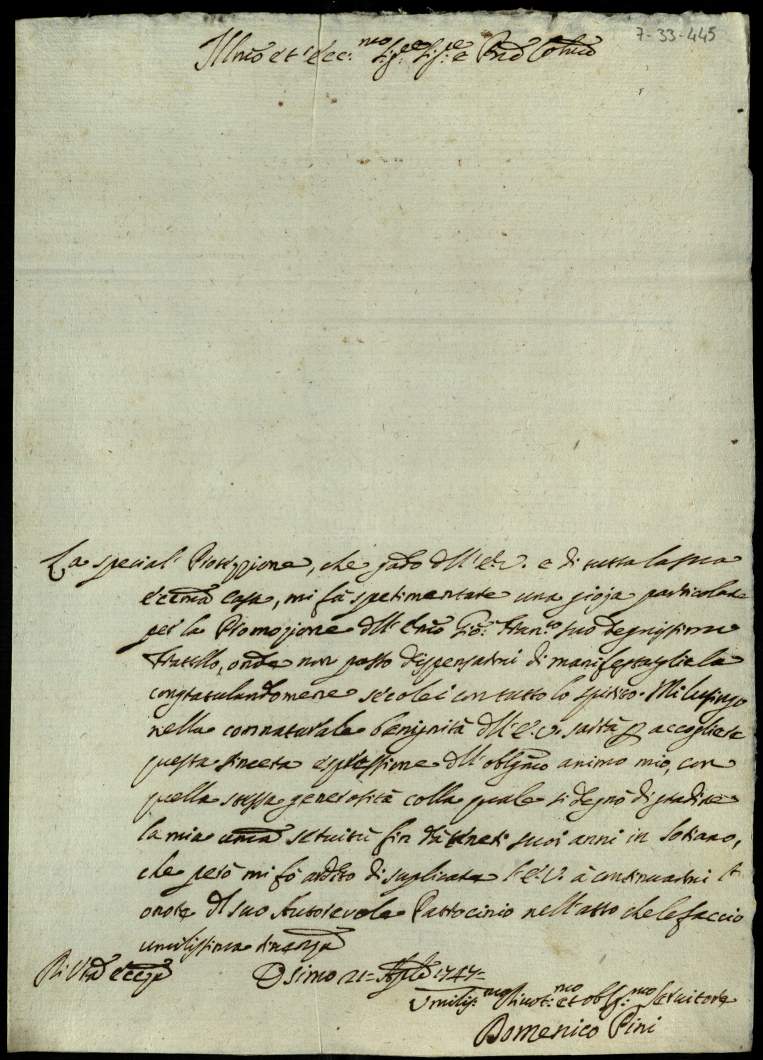 7-33-445
Illmo et Ecc.mo Sig.re Sig.re e Pnē Colmo
La special' Protezzione, che godo dell'E.V. e di tutta la sua
Eccma Casa, mi fà sperimentare una gioja particolare
per la Promozione dell' Emo Gio: Fran.co suo degnissimo
Fratello, onde non posso dispensarmi di manifestagliela
congratulandomene seco lei con tutto lo spirito. Mi lusingo
nella connaturale benignità dell' E.V. sarà p accogliere
questa sincera espressione dell' oblgmo animo mio, con
quella stessa generosità colla quale si degnò di gradire
la mia umā servitù fin da teneri suoi anni in Soriano,
che però mi fò ardito di suplicare l'E.V. à continuarmi l'
onore del suo Autorevole Patrocinio nell'atto che le faccio
umilissima
Di Vrā Eccza
Osimo 21= Aple 1747=
Umilis.mo Divot.mo et obls.mo Servitore
Domenico Pini